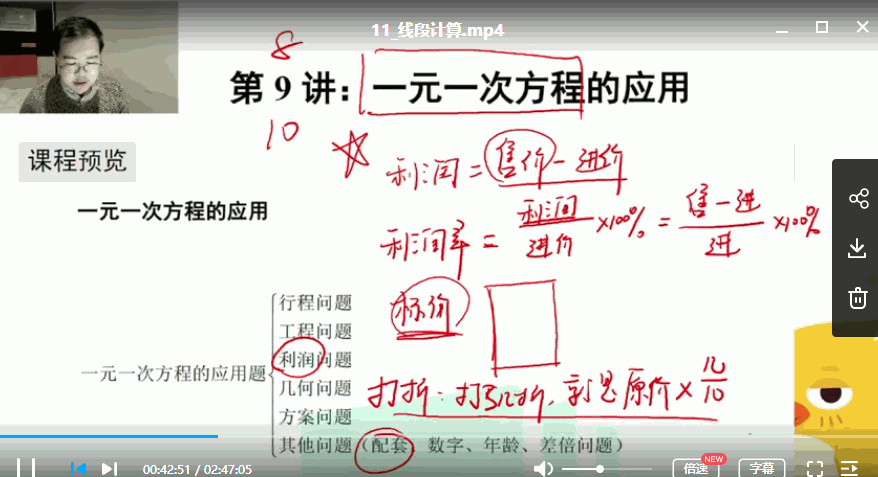 11_线段计算.mp4
8
第 9 讲：一元一次方程的应用
10
课程预览
利润 = 售价 - 进价
一元一次方程的应用
利润率 = 利润/进价 ×100% = 售-进/进 ×100%
标价
行程问题
工程问题
一元一次方程的应用题
利润问题
几何问题
打折: 打几折, 就是原价 × 几/10
方案问题
其他问题（配套、数字、年龄、差倍问题）
00:42:51 / 02:47:05
倍速
NEW
字幕